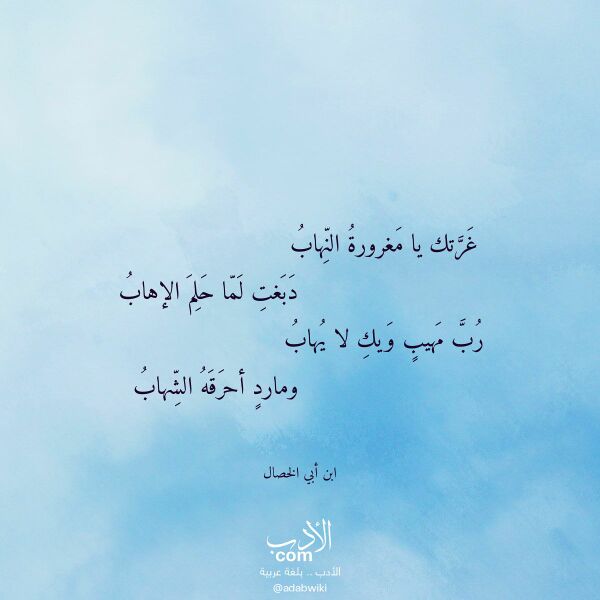 غَرَّتك يا مَغرورةُ النِّهابُ
دَبَغتِ لَمّا حَلِمَ الإهابُ
رُبَّ مَهيبٍ وَيكِ لا يُهابُ
وماردٍ أحرَقَهُ الشِّهابُ
ابن أبي الخصال
الأدب
com
الأدب .. بلغة عربية
@adabwiki